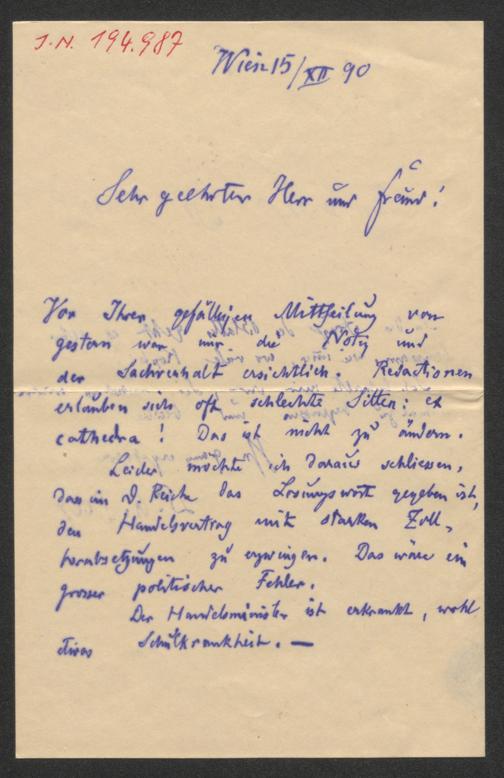 J.N. 194.987
Wien 15/XII 90
Sehr geehrter Herr und Freund!
Vor Ihrer gefälligen Mittheilung von
gestern war mir die Notiz und
der Sachverhalt ersichtlich. Redactionen
erlauben sich oft schlechte Sitten: ex
cathedra! Das ist nicht zu ändern.
Leider möchte ich daraus schliessen,
dass im D. Reiche das Losungswort gegeben ist,
den Handelsvertrag mit starken Zoll-
herabsetzungen zu erzwingen. Das wäre ein
grosser politischer Fehler.
Der Handelsminister ist erkrankt, wohl
etwas Schulkrankheit. —